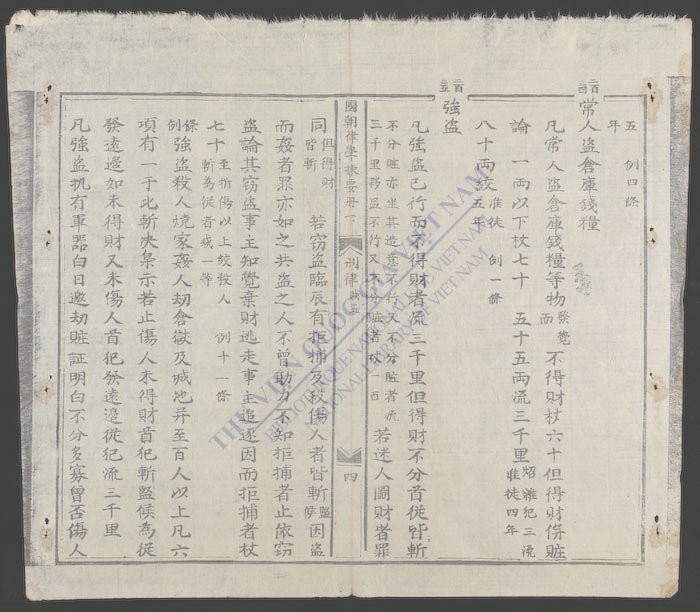 五 例四條
年
二百二十四 常人盜倉庫錢糧
凡常人盜倉庫錢糧等物 發覺而 不得財杖六十但得財併贓
論 一兩以下杖七十 五十五兩流三千里 照雜犯三流准徒四年
八十兩絞 准徒五年 例一條
二百二十五 強盜
凡強盜已行而不得財者流三千里但得財不分首從皆斬
不分贓亦坐其造意不行又不分贓者流三千里夥盜不行又不分贓者杖一百 若迷人圖財者罪
國朝律學揀要冊下 刑律 四
同 但得財皆斬 若窃盜臨辰有拒捕及殺傷人者皆斬 監候 因盜
而姦者罪亦如之共盜之人不曾助力不知拒捕者止依窃
盜論其窃盜事主知覺棄財逃走事主追逐因而拒捕者杖
七十 至折傷以上絞殺人斬為從者減一等 例十一條
條例 強盜殺人燒家姦人劫倉獄及城池并至百人以上凡六
項有一于此斬决梟示若止傷人未得財首犯斬監候為從
發遠邊如未得財又未傷人首犯發遠邊從犯流三千里
凡強盜執有軍器白日邀劫贓証明白不分多寡曾否傷人
THƯ VIỆN QUỐC GIA VIỆT NAM
BIBLIOTHÈQUE NATIONALE DU VIETNAM
NATIONAL LIBRARY OF VIETNAM